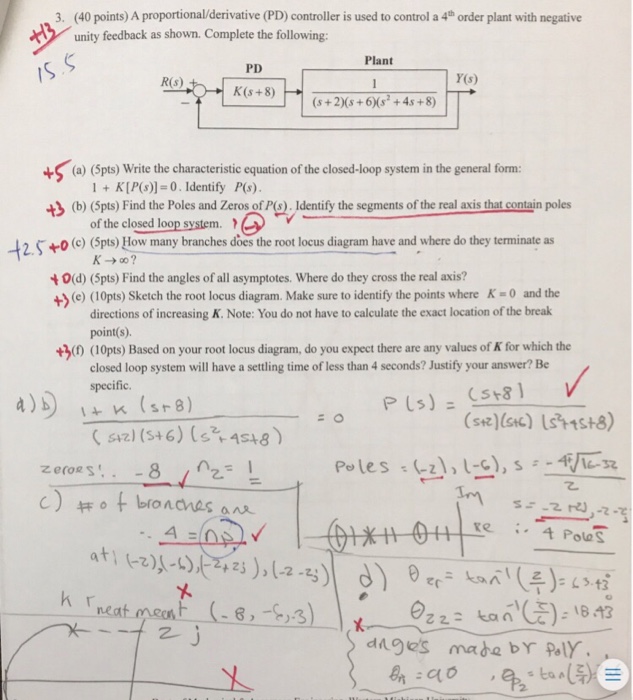 3. (40 points) A proportional/derivative (PD) controller is used to control a 4th order plant with negative
unity feedback as shown. Complete the following:
+13
15.5
PD
Plant
R(s) +
−
K(s+8)
1
(s+2)(s+6)(s²+4s+8)
Y(s)
+5 (a) (5pts) Write the characteristic equation of the closed-loop system in the general form:
1 + K[P(s)] = 0. Identify P(s).
+3 (b) (5pts) Find the Poles and Zeros of P(s). Identify the segments of the real axis that contain poles
of the closed loop system. ?
+2.5 +0 (c) (5pts) How many branches does the root locus diagram have and where do they terminate as
K→∞?
+0 (d) (5pts) Find the angles of all asymptotes. Where do they cross the real axis?
+3 (e) (10pts) Sketch the root locus diagram. Make sure to identify the points where K=0 and the
directions of increasing K. Note: You do not have to calculate the exact location of the break
point(s).
+3 (f) (10pts) Based on your root locus diagram, do you expect there are any values of K for which the
closed loop system will have a settling time of less than 4 seconds? Justify your answer? Be
specific.
a) b) 1+ K (s+8)
(s+2)(s+6)(s²+4s+8)
= 0
P(s) = (s+8)
(s+2)(s+6)(s²+4s+8)
zeroes: -8, nz = 1
Poles = (-2), (-6), s = -4±√16-32
2
s = -2+2j, -2-2j
∴ 4 Poles
c) # of branches are
∴ 4 = np
at: (-2), (-6), (-2+2j), (-2-2j)
Im
re
d) θ = tan⁻¹(2/1) = 63.43°
θz2 = tan⁻¹ = 18.43
angles made by Poly.
= 90
2j